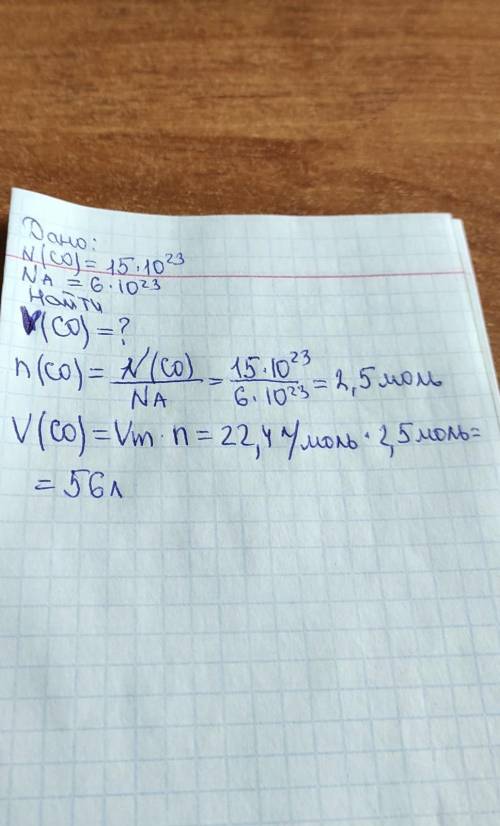 Дано:
N(CO) = 15·10²³
NA = 6·10²³
Найти
V(CO) = ?
n(CO) = N(CO)/NA = 15·10²³/6·10²³ = 2,5 моль
V(CO) = Vm · n = 22,4 л/моль · 2,5 моль =
= 56 л